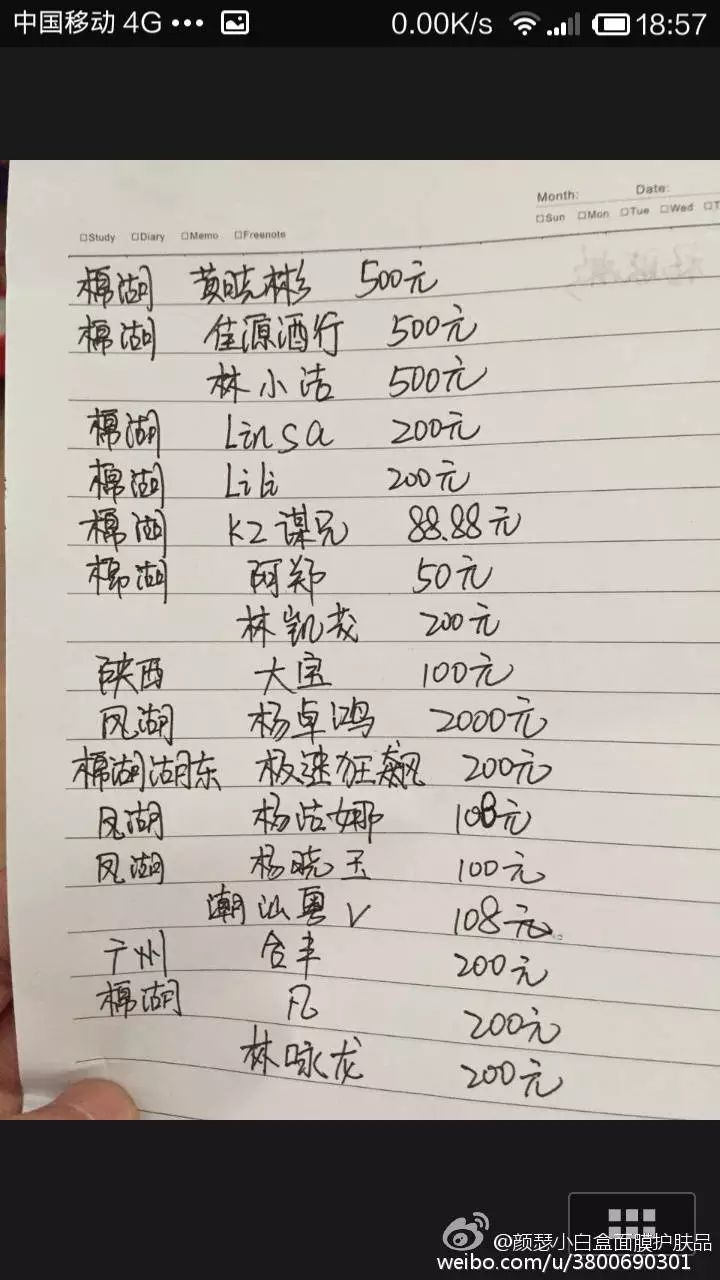 中国移动 4G ••• 0.00K/s 18:57
Month: Date:
□Study □Diary □Memo □Freenote □Sun □Mon □Tue □Wed □T
棉湖 黄晓彬 500元
棉湖 佳源酒行 500元
林小洁 500元
棉湖 Linsa 200元
棉湖 Lili 200元
棉湖 K2谋兄 88.88元
棉湖 阿郑 50元
林凯茂 200元
陕西 大宝 100元
凤湖 杨卓鸿 2000元
棉湖湖东 极速狂飙 200元
凤湖 杨洁娜 108元
凤湖 杨晓玉 100元
潮汕粤V 108元
广州 合丰 200元
棉湖 凡 200元
林咏龙 200元
@颜瑟小白盒面膜护肤品
weibo.com/u/3800690301